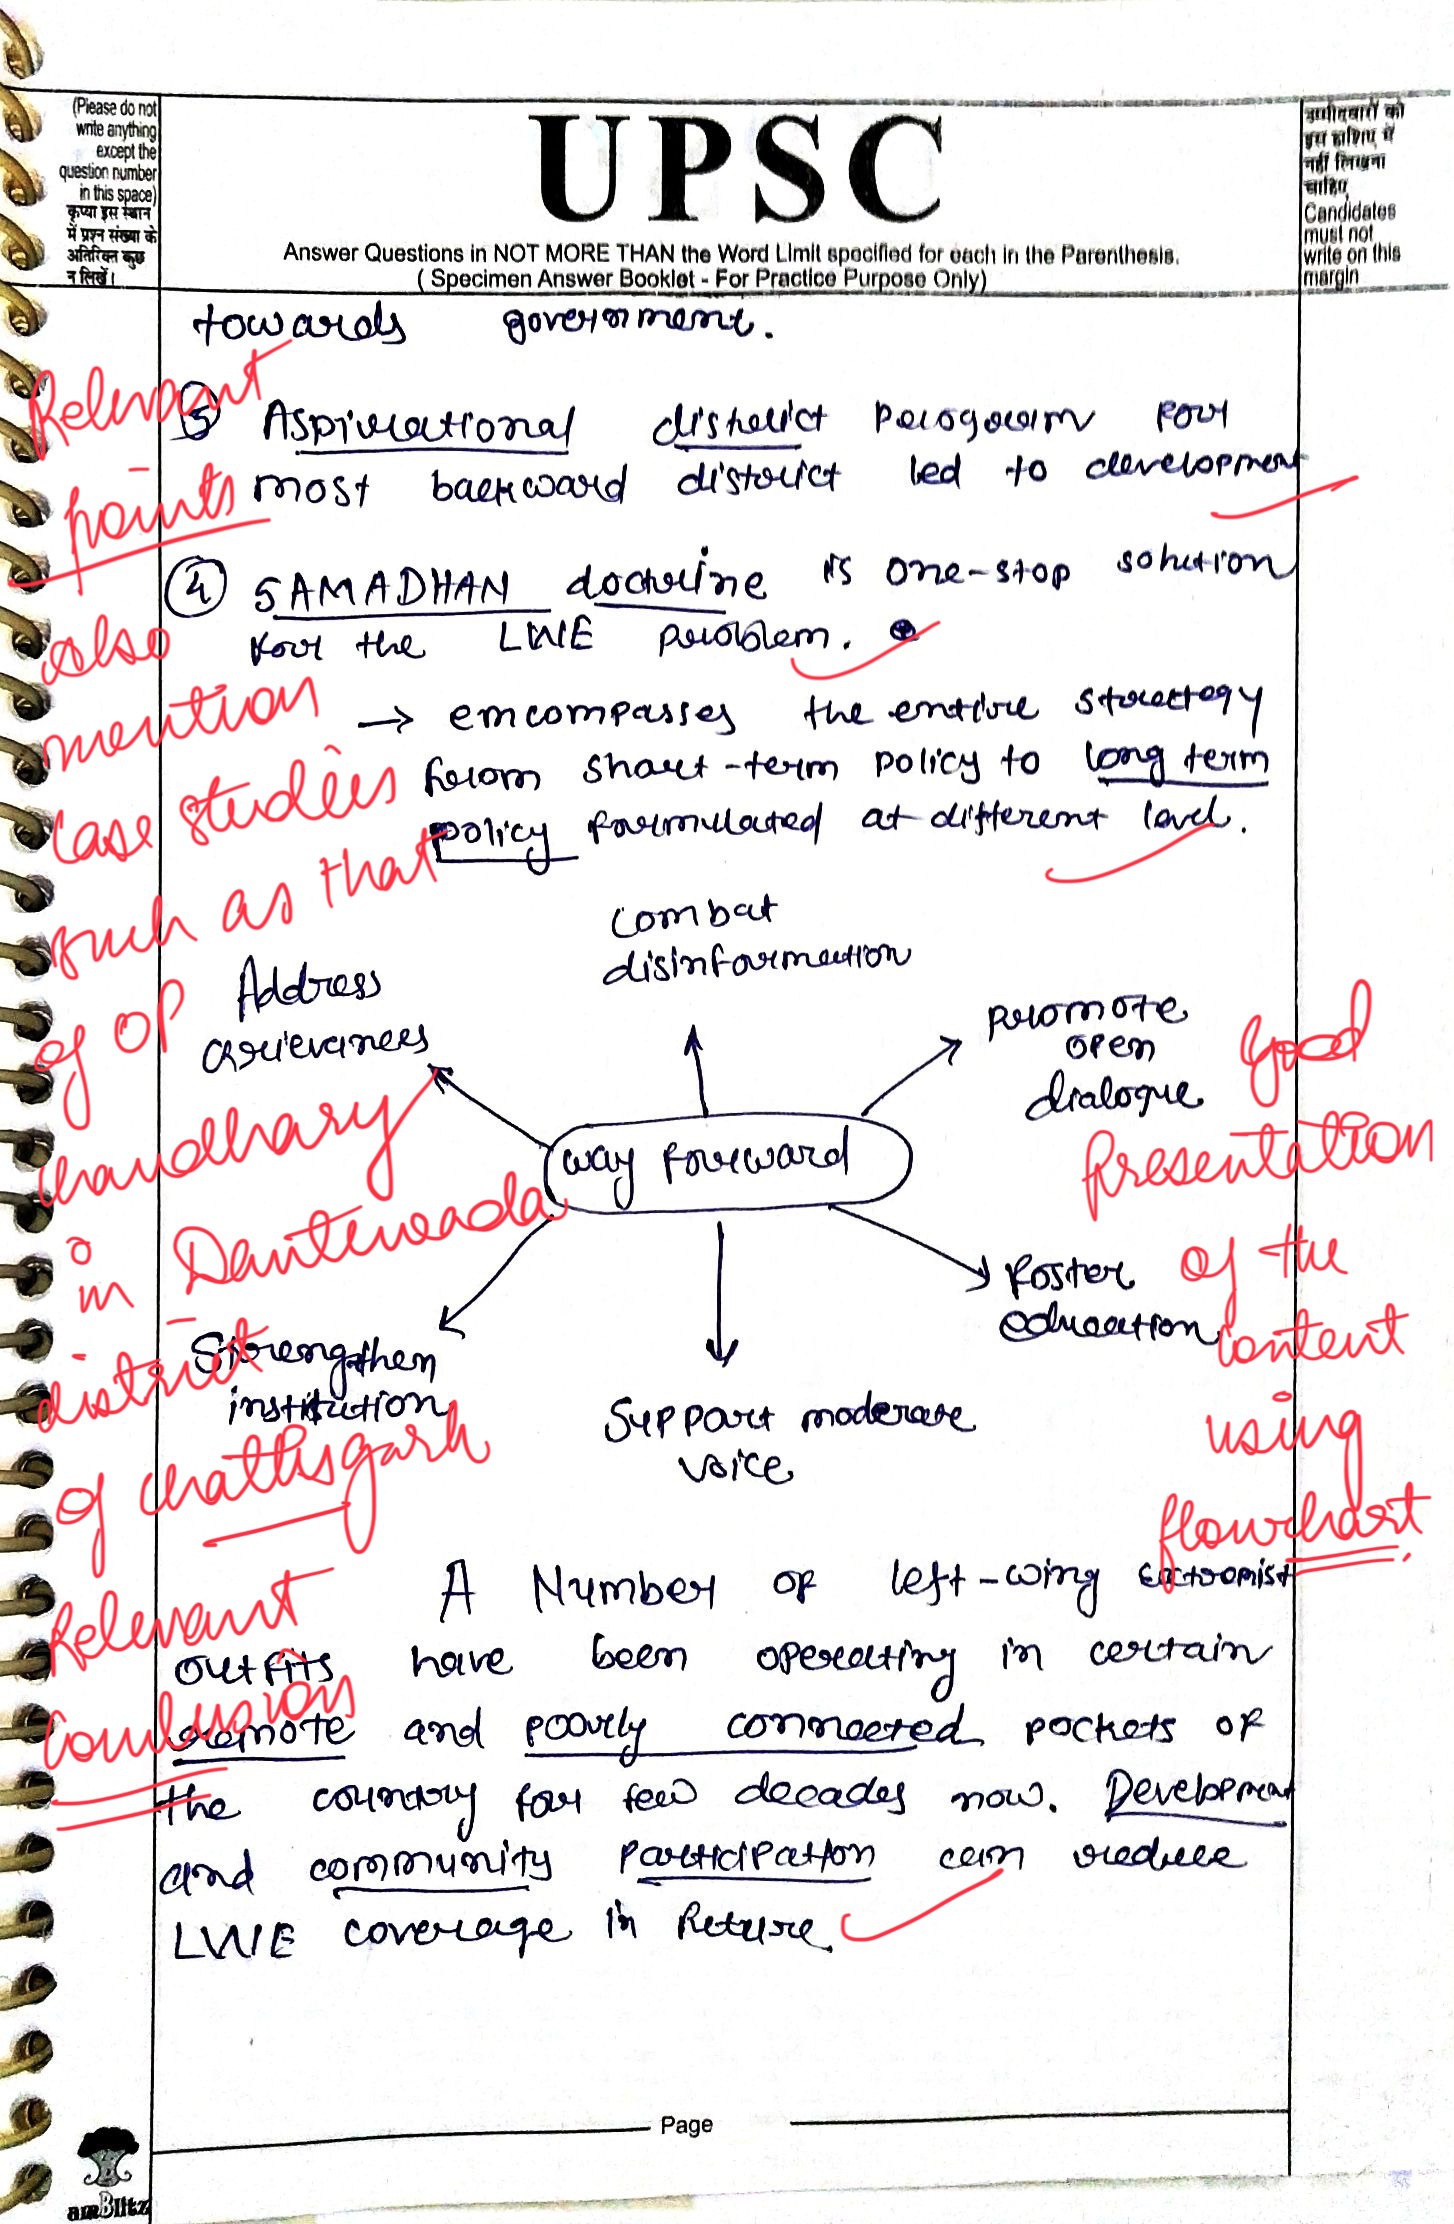 (Please do not
write anything
except the
question number
in this space)
कृप्या इस स्थान
में प्रश्न संख्या के
अतिरिक्त कुछ
न लिखें।
UPSC
Answer Questions in NOT MORE THAN the Word Limit specified for each in the Parenthesis.
( Specimen Answer Booklet - For Practice Purpose Only)
उम्मीदवारों को
इस हाशिए में
नहीं लिखना
चाहिए
Candidates
must not
write on this
margin
towards government.
③ Aspirational district program for
most backward district led to development
④ SAMADHAN doctrine is one-stop solution
for the LWE problem.
→ emcompasses the entire strategy
from short-term policy to long term
policy formulated at different level.
Relevant
points
also
mention
case studies
such as that
of OP
Chaudhary
in Dantewada
district
of Chattisgarh
combat
disinformation
Address
Grievances
promote
open
dialogue
way forward
Strengthen
institution
Support moderate
voice
foster
education
Good
presentation
of the
content
using
flowchart.
A Number of left-wing extremist
outfits have been operating in certain
remote and poorly connected pockets of
the country for few decades now. Development
and community participation can reduce
LWE coverage in future.
Relevant
Conclusion
Page
amBlitz